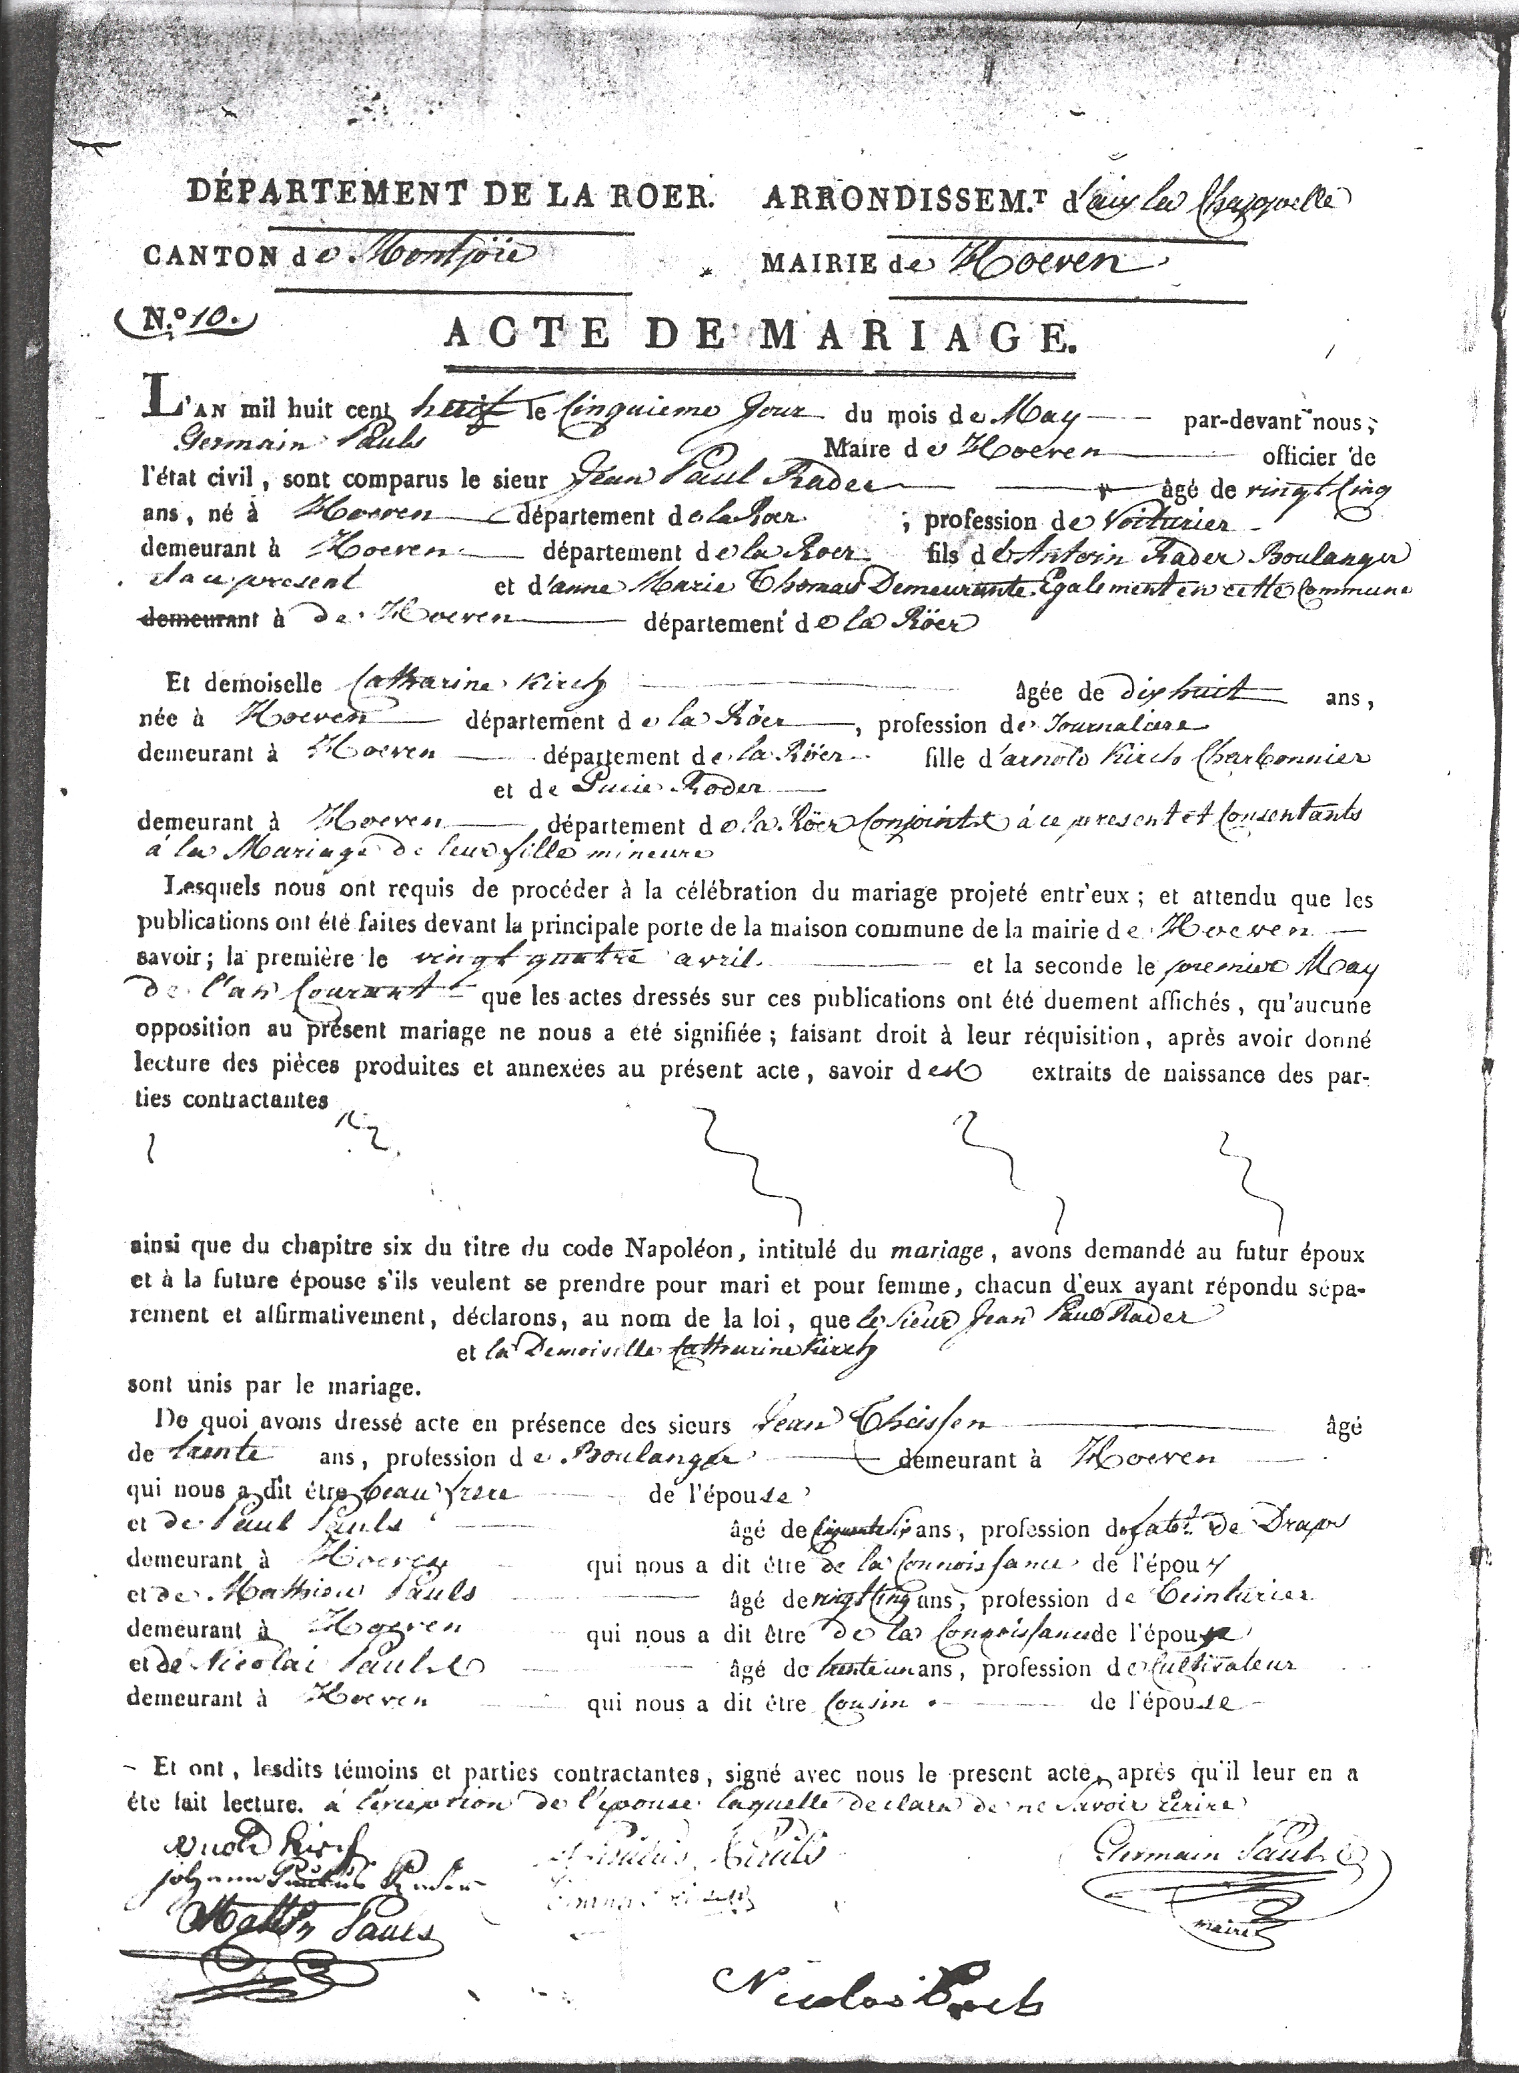 DÉPARTEMENT DE LA ROER. ARRONDISSEM.T d'aix la Chappelle
CANTON de Montjoie MAIRIE de Hoeven
N.o 10.
ACTE DE MARIAGE.
L'AN mil huit cent huit le Cinquieme Jour du mois de May par-devant nous,
Germain Pauls Maire de Hoeven officier de
l'état civil, sont comparus le sieur Jean Paul Rader âgé de vingt Cinq
ans, né à Hoeven département de la Roer ; profession de Voiturier
demeurant à Hoeven département de la Roer fils de Antoin Rader Boulanger
et a ce present et d'anne Marie Thomas Demeurante Egalement en cette Commune
demeurant à de Hoeven département de la Röer
Et demoiselle Catharine Kirch âgée de dix huit ans,
née à Hoeven département de la Röer, profession de Journaliere
demeurant à Hoeven département de la Röer fille d'arnold Kirch Charbonnier
et de Lucie Roder
demeurant à Hoeven département de la Röer Conjoints à ce present et Consentants
à la Mariage de leur fille mineure
Lesquels nous ont requis de procéder à la célébration du mariage projeté entr'eux ; et attendu que les
publications ont été faites devant la principale porte de la maison commune de la mairie de Hoeven
savoir ; la première le vingt quatre avril et la seconde le premier May
de l'an Courant que les actes dressés sur ces publications ont été duement affichés, qu'aucune
opposition au présent mariage ne nous a été signifiée ; faisant droit à leur réquisition, après avoir donné
lecture des pièces produites et annexées au présent acte, savoir des extraits de naissance des par-
ties contractantes
ainsi que du chapitre six du titre du code Napoléon, intitulé du mariage, avons demandé au futur époux
et à la future épouse s'ils veulent se prendre pour mari et pour femme, chacun d'eux ayant répondu sépa-
rement et affirmativement, déclarons, au nom de la loi, que le Sieur Jean Paul Rader
et la Demoiselle Catharine Kirch
sont unis par le mariage.
De quoi avons dressé acte en présence des sieurs Jean Theissen âgé
de trente ans, profession de Boulanger demeurant à Hoeven
qui nous a dit être beau frere de l'épouse
et de Paul Pauls âgé de Cinquante Six ans, profession de fabt. de Draps
demeurant à Hoeven qui nous a dit être de la Connoissance de l'époux
et de Mathieu Pauls âgé de vingt Cinq ans, profession de Teinturier
demeurant à Hoeven qui nous a dit être de la Connoissance de l'épouse
et de Nicolai Pauls âgé de trente un ans, profession de Cultivateur
demeurant à Hoeven qui nous a dit être Cousin de l'épouse
Et ont, lesdits témoins et parties contractantes, signé avec nous le present acte, après qu'il leur en a
éte fait lecture. à l'exception de l'épouse laquelle declara de ne Savoir ecrire
Arnold Kirch
Johann Paulus Rader Pauls Germain Pauls
Matth Pauls maire
Nicolas Pauls